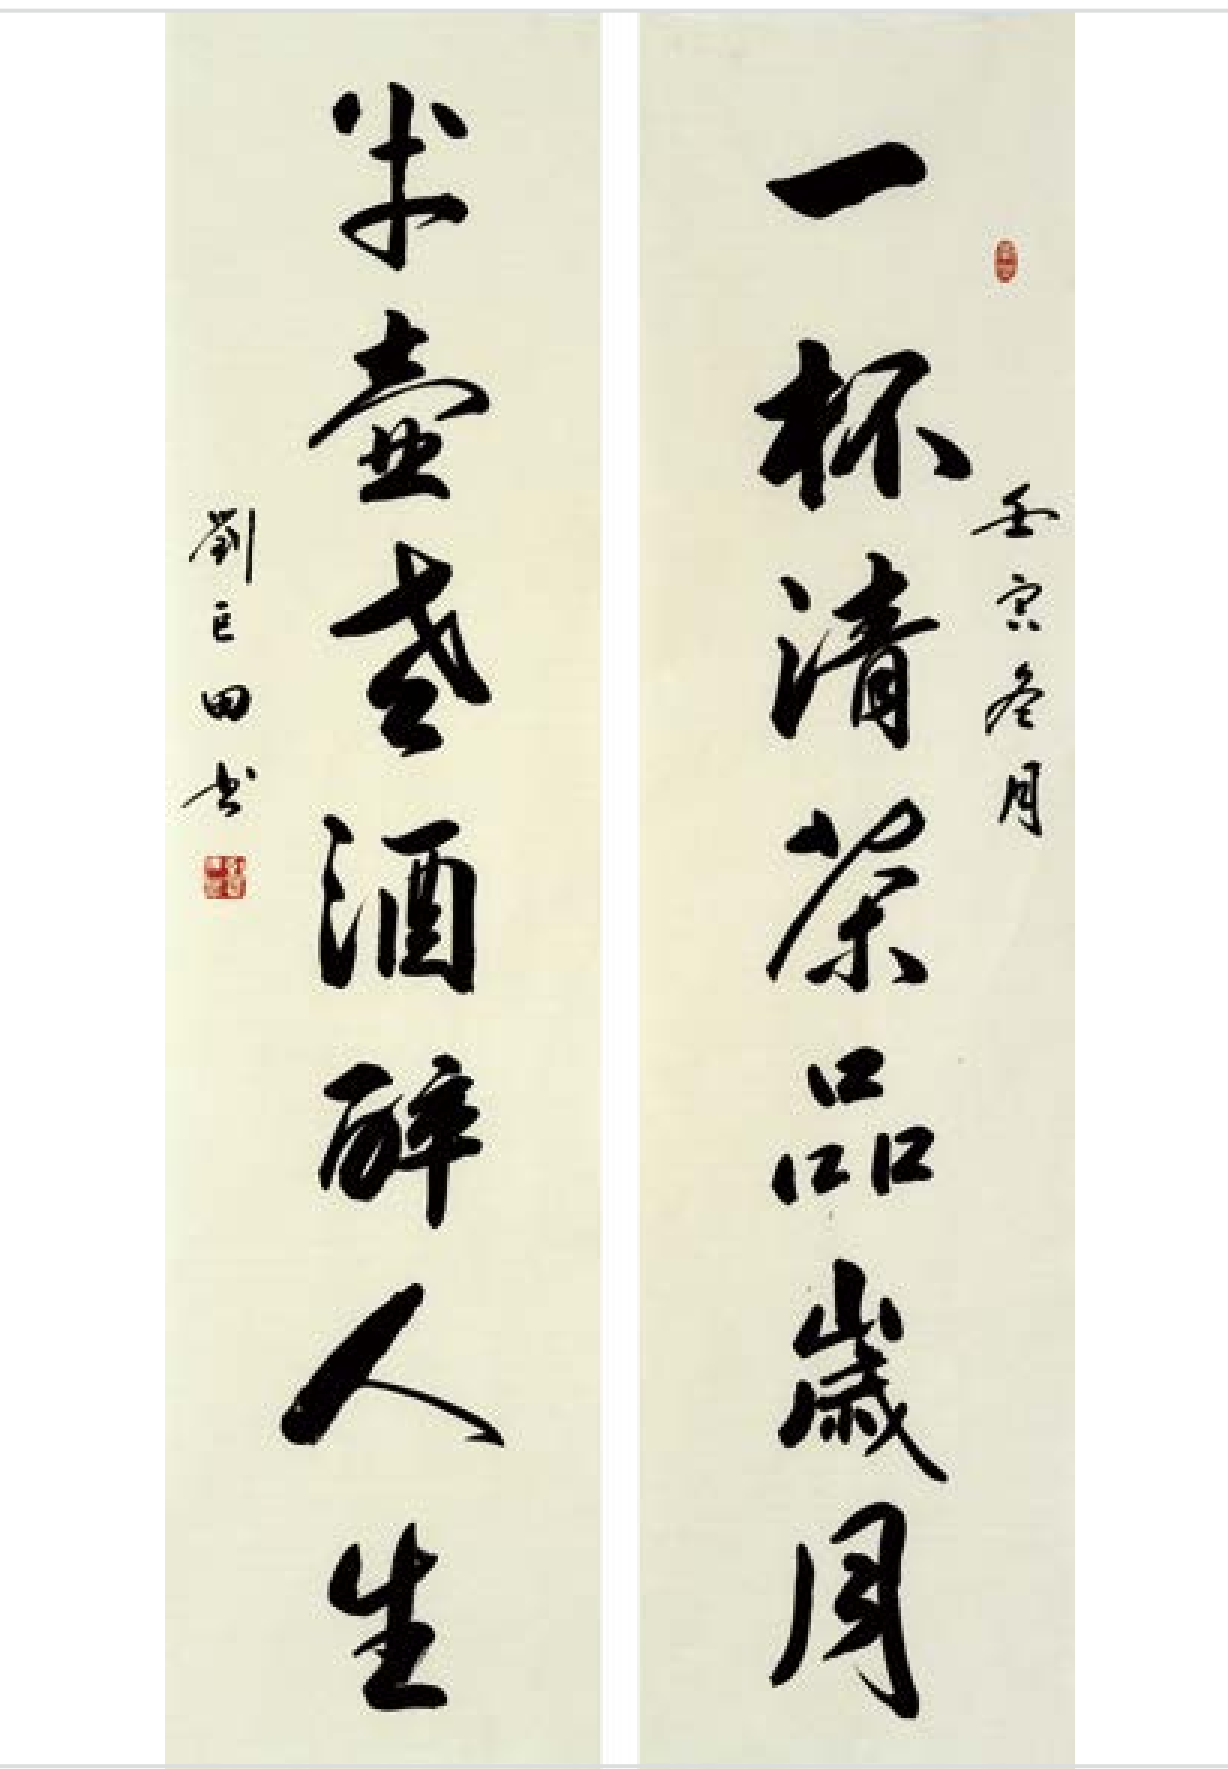 壬寅冬月
一杯清茶品歲月
半壺老酒醉人生
劉已田書